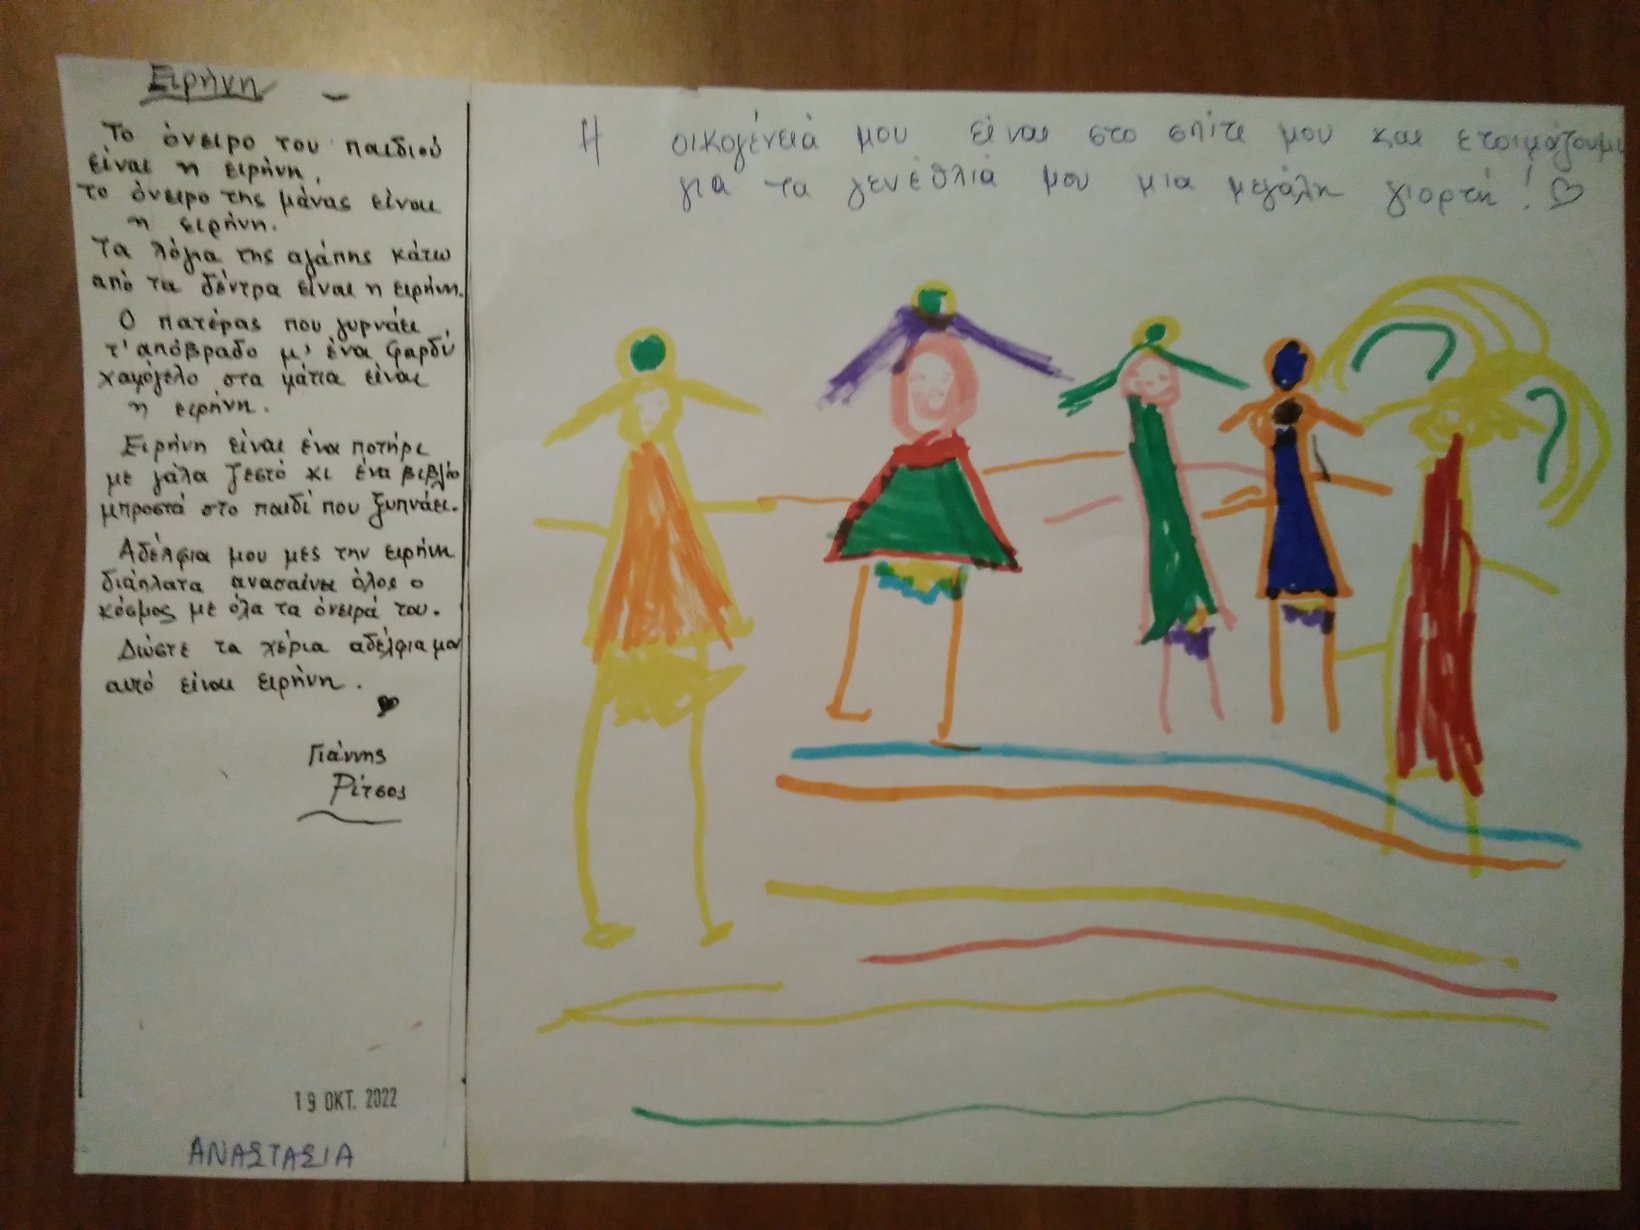 Ειρήνη
Το όνειρο του παιδιού
είναι η ειρήνη.
το όνειρο της μάνας είναι
η ειρήνη.
Τα λόγια της αγάπης κάτω
από τα δέντρα είναι η ειρήνη.
Ο πατέρας που γυρνάει
τ' απόβραδο μ' ένα φαρδύ
χαμόγελο στα μάτια είναι
η ειρήνη.
Ειρήνη είναι ένα ποτήρι
με γάλα ζεστό κι ένα βιβλίο
μπροστά στο παιδί που ξυπνάει.
Αδέλφια μου μες την ειρήνη
διάπλατα ανασαίνει όλος ο
κόσμος με όλα τα όνειρά του.
Δώστε τα χέρια αδέλφια μου
αυτό είναι ειρήνη.
Γιάννης
Ρίτσος
19 ΟΚΤ. 2022
ΑΝΑΣΤΑΣΙΑ
Η οικογένειά μου είναι στο σπίτι μου και ετοιμάζουμε
για τα γενέθλιά μου μια μεγάλη γιορτή!